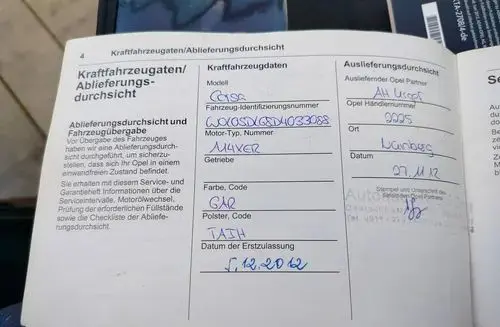 4 Kraftfahrzeugaten/Ablieferungsdurchsicht
Kraftfahrzeugaten/
Ablieferungs-
durchsicht
Ablieferungsdurchsicht und
Fahrzeugübergabe
Vor Übergabe des Fahrzeuges
haben wir eine Ablieferungsdurch-
sicht durchgeführt, um sicherzu-
stellen, dass sich Ihr Opel in einem
einwandfreien Zustand befindet.
Sie erhalten mit diesem Service- und
Garantieheft Informationen über die
Serviceintervalle, Motorölwechsel,
Prüfung der erforderlichen Füllstände
sowie die Checkliste der Abliefe-
rungsdurchsicht.
Kraftfahrzeugdaten
Modell
Corsa
Fahrzeug-Identifizierungsnummer
Motor-Typ, Nummer
Getriebe
Farbe, Code
GAR
Polster, Code
TAIH
Datum der Erstzulassung
5.12.2012
Auslieferungsdurchsicht
Ausliefernder Opel Partner
AH
Opel Händlernummer
2225
Ort
Nürnberg
Datum
27.11.12
Stempel und Unterschrift des